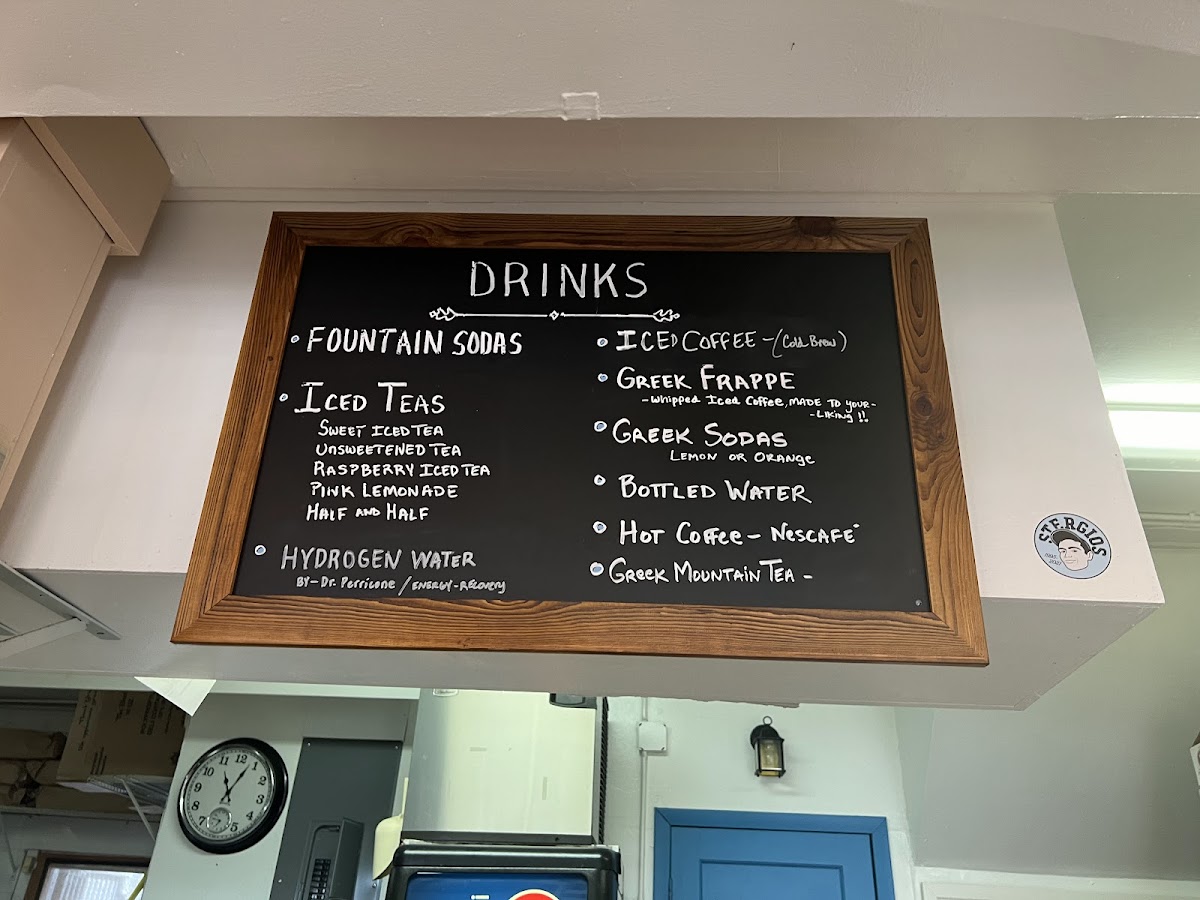 DRINKS
FOUNTAIN SODAS
ICED TEAS
SWEET ICED TEA
UNSWEETENED TEA
RASPBERRY ICED TEA
PINK LEMONADE
HALF AND HALF
HYDROGEN WATER
BY - Dr. Perricone / ENERGY - RECOVERY
ICED COFFEE - (Cold Brew)
GREEK FRAPPE
- Whipped Iced Coffee, MADE TO YOUR -
- LIKING !!
GREEK SODAS
LEMON OR ORANGE
BOTTLED WATER
HOT COFFEE - NESCAFE
GREEK MOUNTAIN TEA -
STERGIOS
12
1
2
3
4
5
7
8
9
10
11